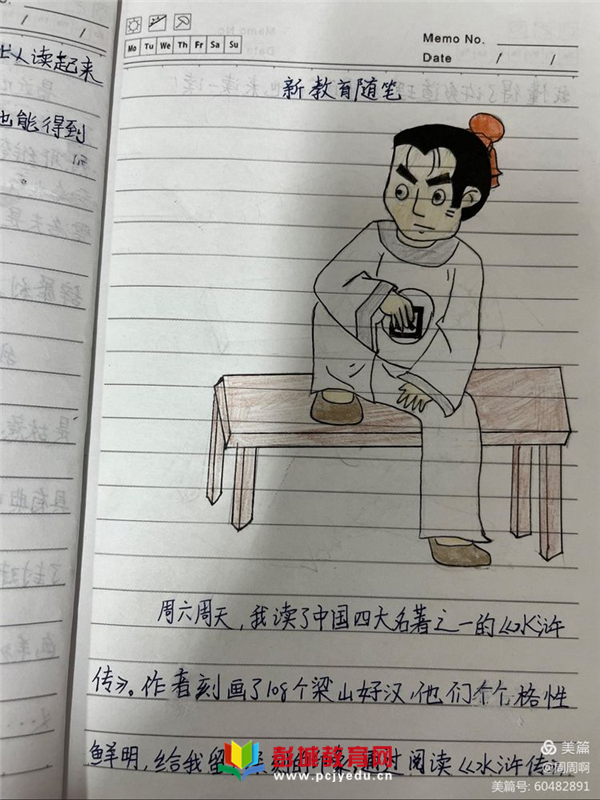 Memo No.
Mo Tu We Th Fr Sa Su
Date / /
让人读起来
也能得到
新教育随笔
周六周天,我读了中国四大名著之一的《水浒
传》。作者刻画了108个梁山好汉,他们个个格性
鲜明,给我留 通过阅读《水浒传》
彭城教育网
www.pcjyedu.cn
美篇
@周周啊
美篇号: 60482891